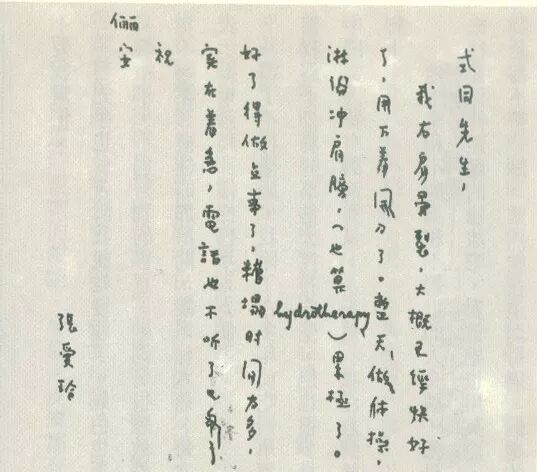 式同先生,
我右肩骨裂,大概已經快好
了,用不着開刀了。整天做体操,
淋浴冲肩膀,(也算hydrotherapy)累極了。
好了得做点事了,糟塌时间太多,
實在着急,電話也不听了
祝
儷安
張愛玲